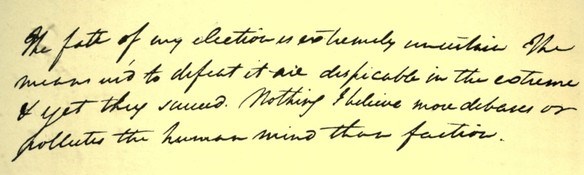 The fate of my election is extremely uncertain The
means us'd to defeat it are dispicable in the extreme
& yet they succeed. Nothing I believe more debases or
pollutes the human mind than faction.